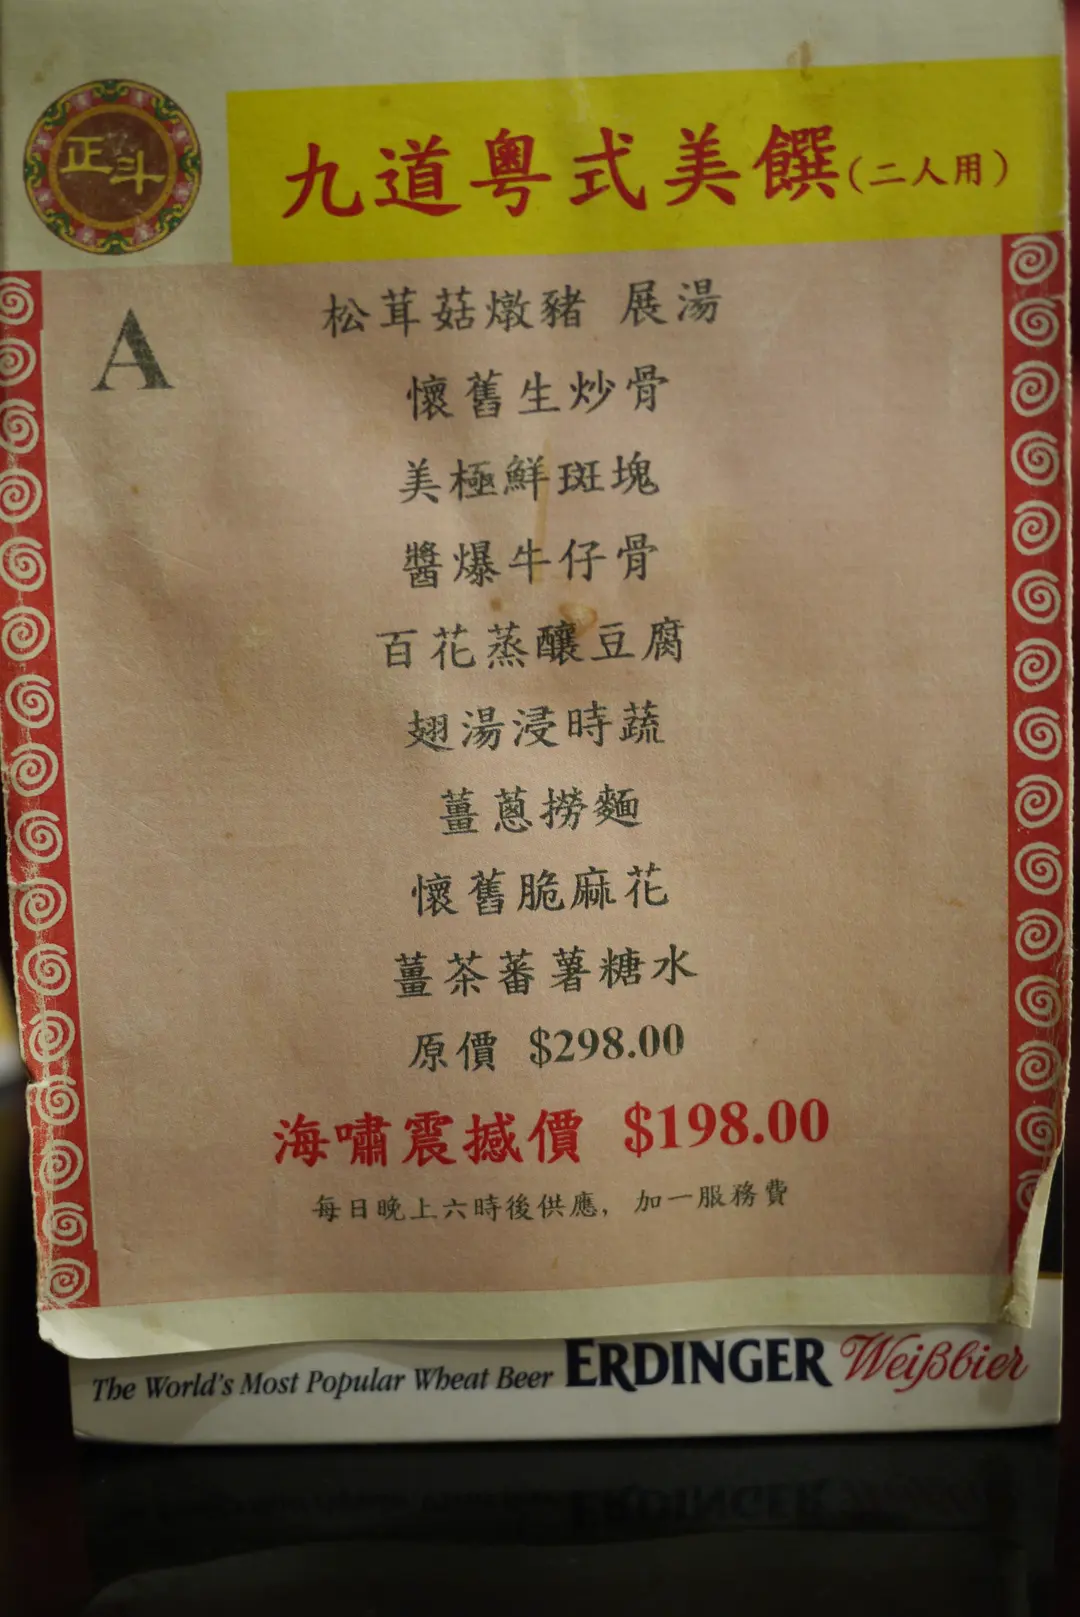 正斗
九道粵式美饌(二人用)
A
松茸菇燉豬 展湯
懷舊生炒骨
美極鮮斑塊
醬爆牛仔骨
百花蒸釀豆腐
翅湯浸時蔬
薑蔥撈麵
懷舊脆麻花
薑茶蕃薯糖水
原價 $298.00
海嘯震撼價 $198.00
每日晚上六時後供應, 加一服務費
The World's Most Popular Wheat Beer ERDINGER Weißbier